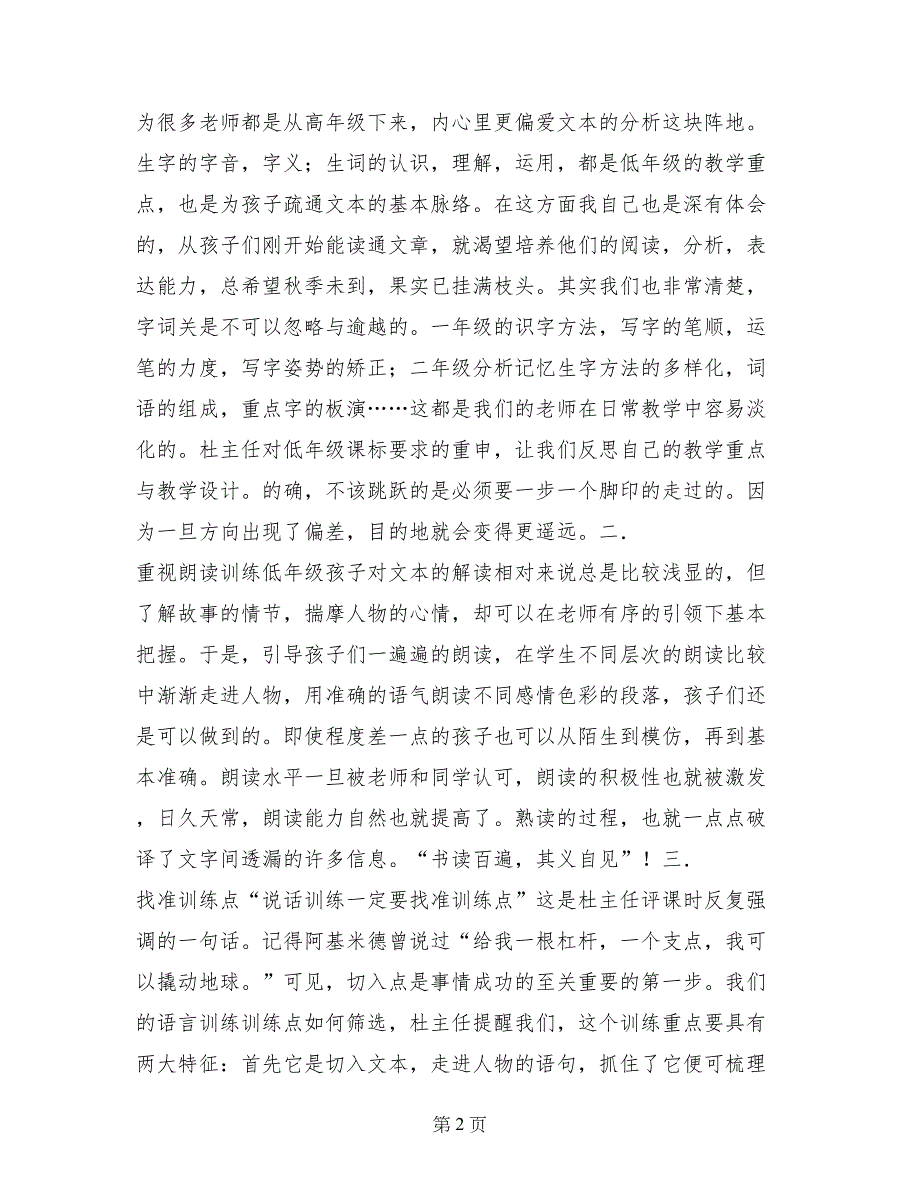 为很多老师都是从高年级下来，内心里更偏爱文本的分析这块阵地。
生字的字音，字义；生词的认识，理解，运用，都是低年级的教学重
点，也是为孩子疏通文本的基本脉络。在这方面我自己也是深有体会
的，从孩子们刚开始能读通文章，就渴望培养他们的阅读，分析，表
达能力，总希望秋季未到，果实已挂满枝头。其实我们也非常清楚，
字词关是不可以忽略与逾越的。一年级的识字方法，写字的笔顺，运
笔的力度，写字姿势的矫正；二年级分析记忆生字方法的多样化，词
语的组成，重点字的板演……这都是我们的老师在日常教学中容易淡
化的。杜主任对低年级课标要求的重申，让我们反思自己的教学重点
与教学设计。的确，不该跳跃的是必须要一步一个脚印的走过的。因
为一旦方向出现了偏差，目的地就会变得更遥远。二．
重视朗读训练低年级孩子对文本的解读相对来说总是比较浅显的，但
了解故事的情节，揣摩人物的心情，却可以在老师有序的引领下基本
把握。于是，引导孩子们一遍遍的朗读，在学生不同层次的朗读比较
中渐渐走进人物，用准确的语气朗读不同感情色彩的段落，孩子们还
是可以做到的。即使程度差一点的孩子也可以从陌生到模仿，再到基
本准确。朗读水平一旦被老师和同学认可，朗读的积极性也就被激发
，日久天常，朗读能力自然也就提高了。熟读的过程，也就一点点破
译了文字间透漏的许多信息。“书读百遍，其义自见”！三．
找准训练点“说话训练一定要找准训练点”这是杜主任评课时反复强
调的一句话。记得阿基米德曾说过“给我一根杠杆，一个支点，我可
以撬动地球。”可见，切入点是事情成功的至关重要的第一步。我们
的语言训练训练点如何筛选，杜主任提醒我们，这个训练重点要具有
两大特征：首先它是切入文本，走进人物的语句，抓住了它便可梳理
第 2 页